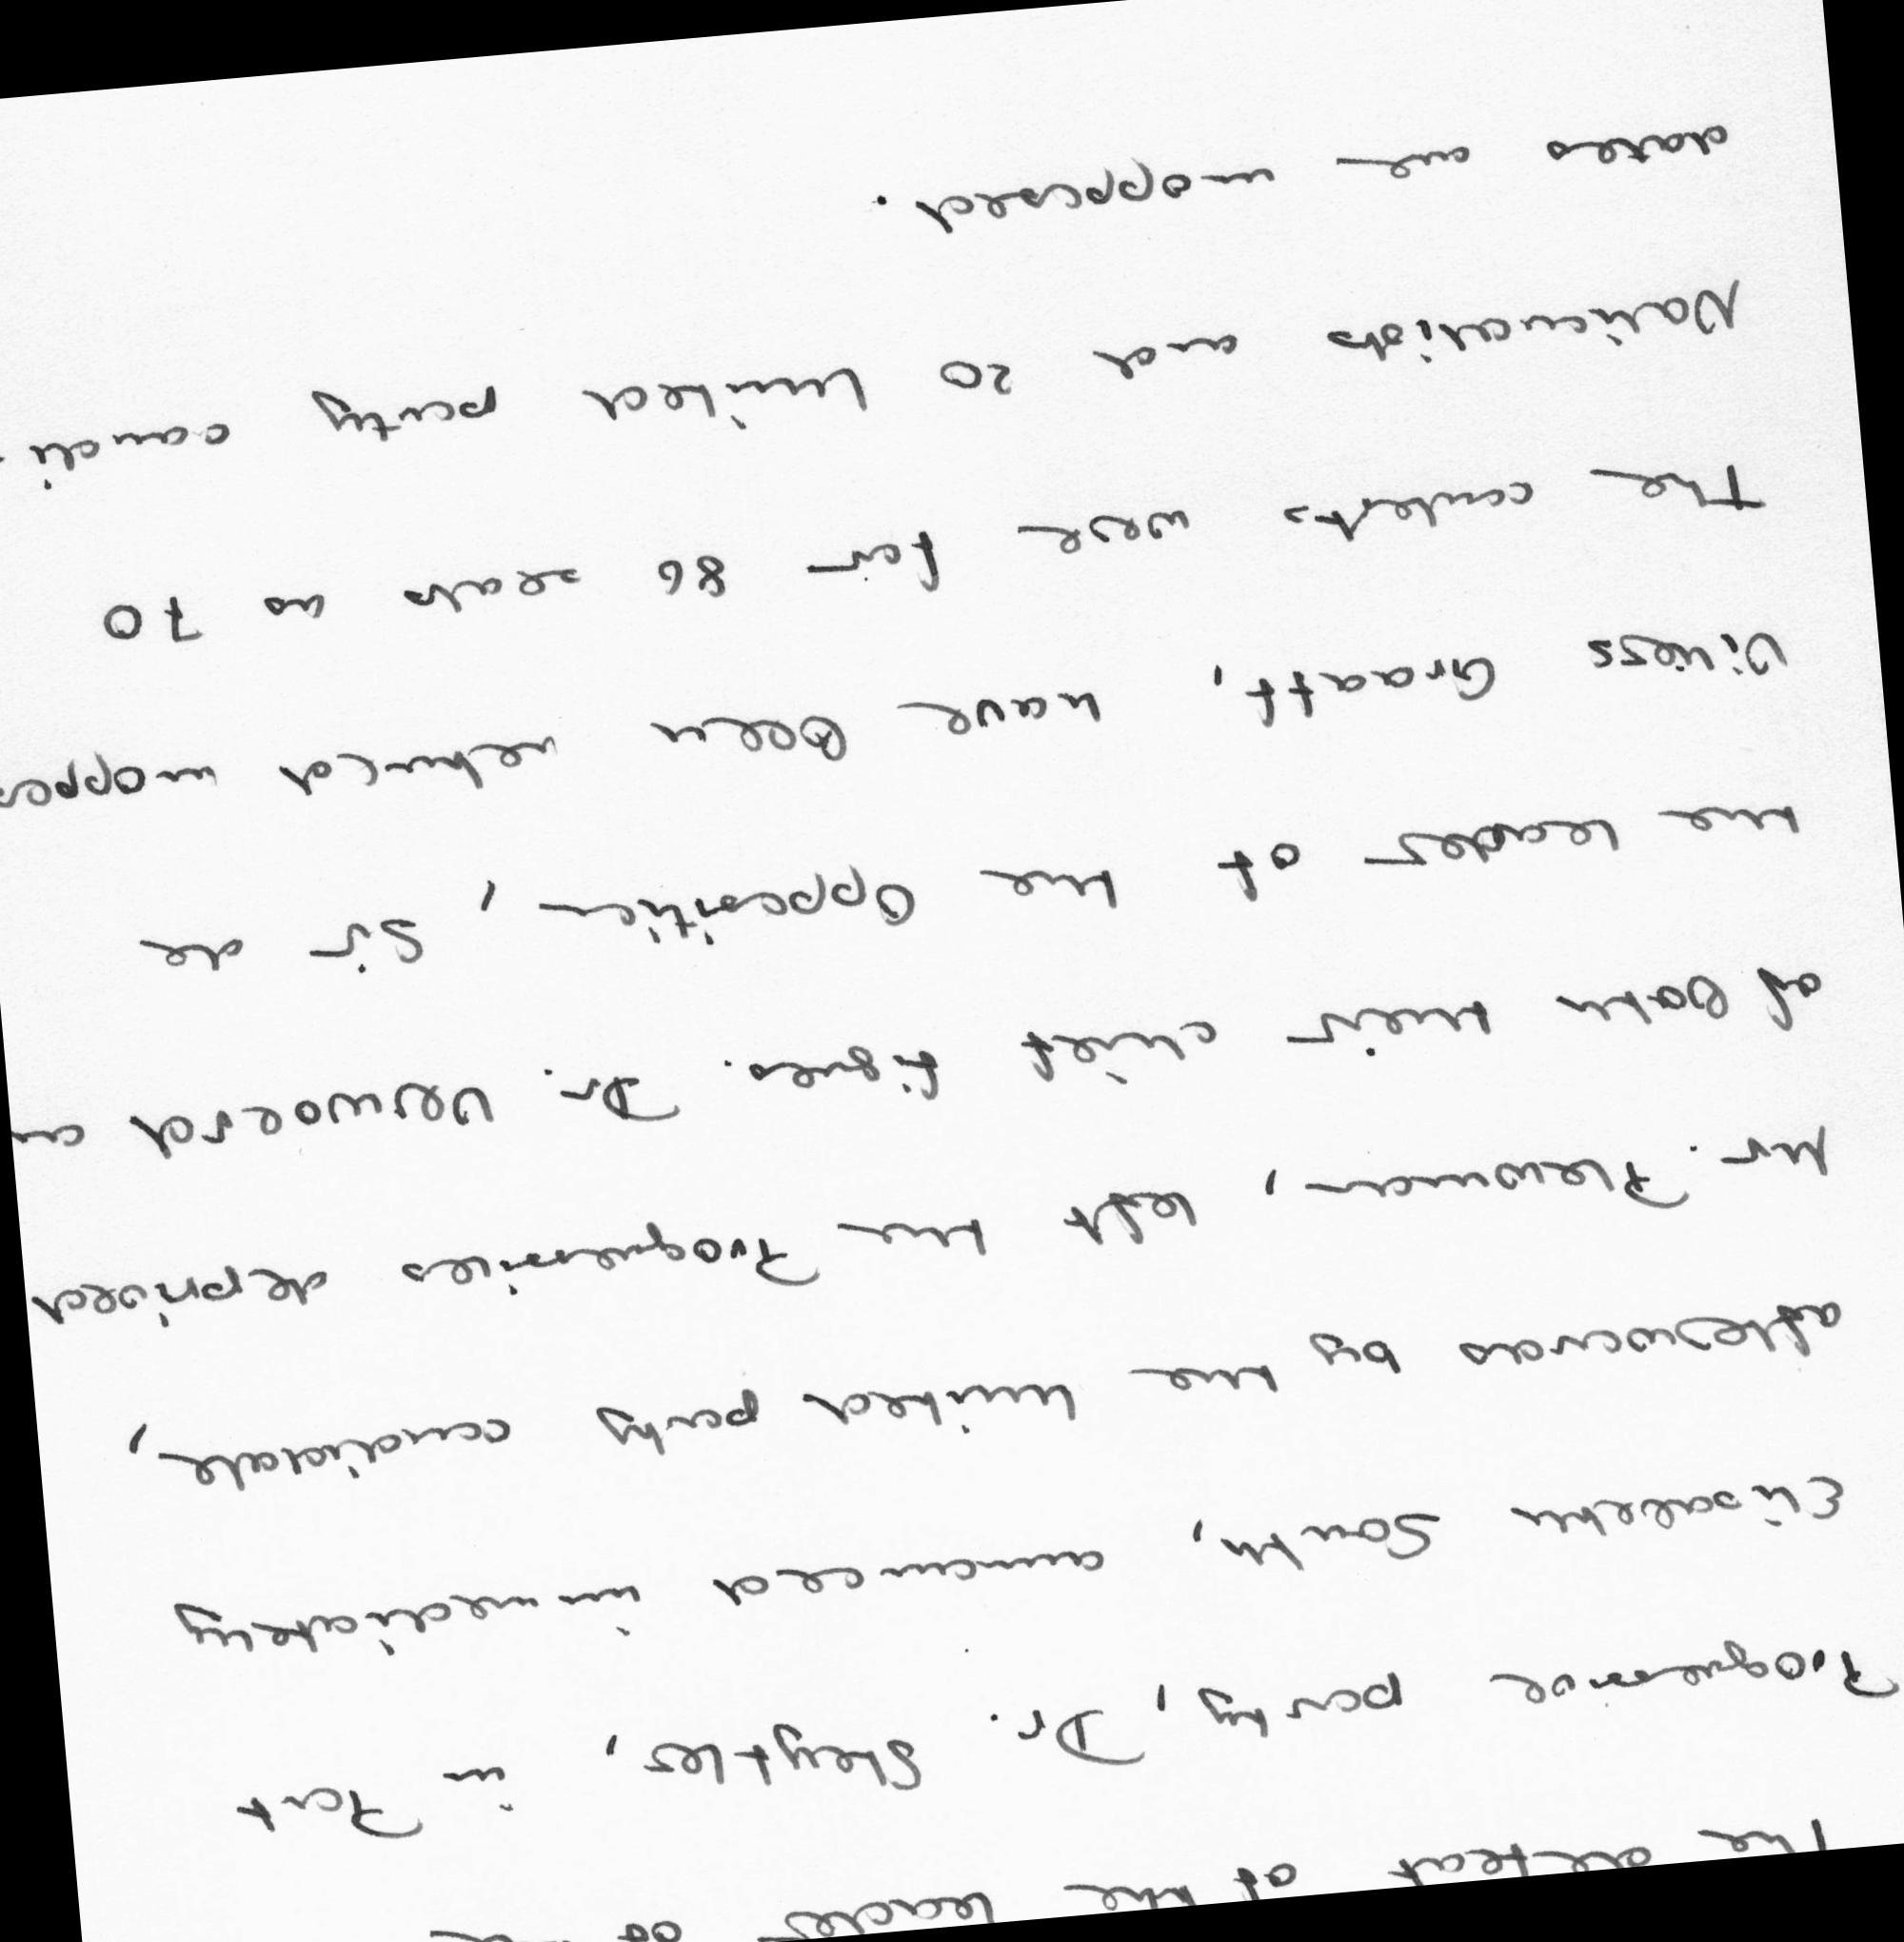 The defeat of the leader of the
Progressive party, Dr. Steytler, in Port
Elizabeth South, announced immediately
afterwards by the United party candidate,
Mr. Plewman, left the Progressives deprived
of both their chief figures. Dr. Verwoerd an
the leader of the Opposition, Sir de
Villiers Graaff, have been returned unoppos
The contests were for 86 seats as 70
Nationalists and 20 United party candi-
dates are unopposed.